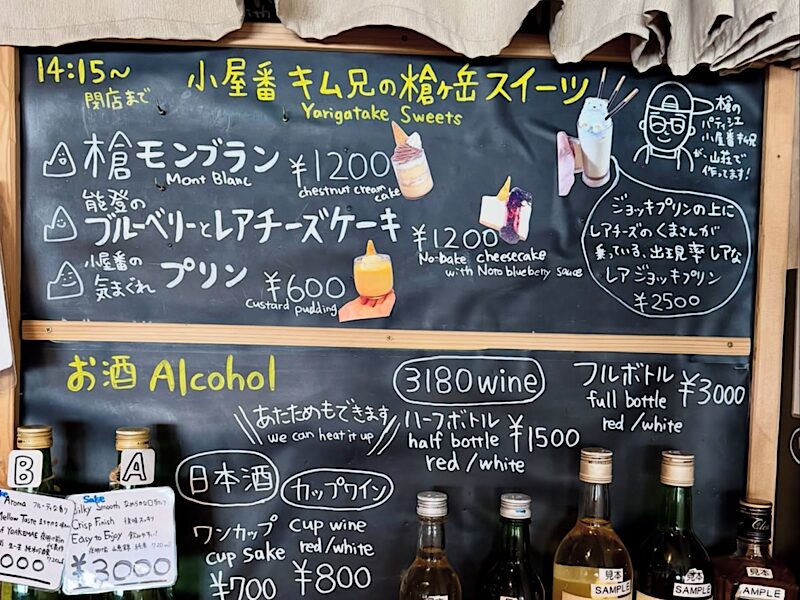 14:15~
閉店まで
小屋番 キム兄の槍ヶ岳 スイーツ
Yarigatake Sweets
槍の
パティシエ
小屋番キム兄
が、山荘で
作ってます!
槍モンブラン ¥1200
Mont Blanc
chestnut cream
cake
能登の
ブルーベリーとレアチーズケーキ
¥1200
No-bake cheesecake
with Noto blueberry sauce
小屋番の
気まぐれ プリン ¥600
custard pudding
ジョッキプリンの上に
レアチーズのくまさんが
乗っている、出現率レアな
レアジョッキプリン
¥2500
お酒 Alcohol
あたためもできます
we can heat it up
3180wine
ハーフボトル
half bottle ¥1500
red/white
フルボトル
full bottle ¥3000
red/white
日本酒
ワンカップ
cup sake
¥700
カップワイン
cup wine
red/white
¥800
B
Aroma
Mellow Taste
A
Sake
Silky Smooth
Crisp Finish
Easy to Enjoy
¥3000
見本
SAMPLE
見本
SAMPLE
見本
SAMPLE